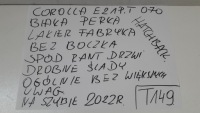 COROLLA E21 P.T 070
BIAŁKA PERŁA
HATCHBACK
LAKIER FABRYKA
BEZ BOCZKA
SPOD RANT DRZWI
DROBNE ŚLADY
OGÓLNIE BEZ WIĘKSZYCH
UWAG
NA SZYBIE 2022R
T149